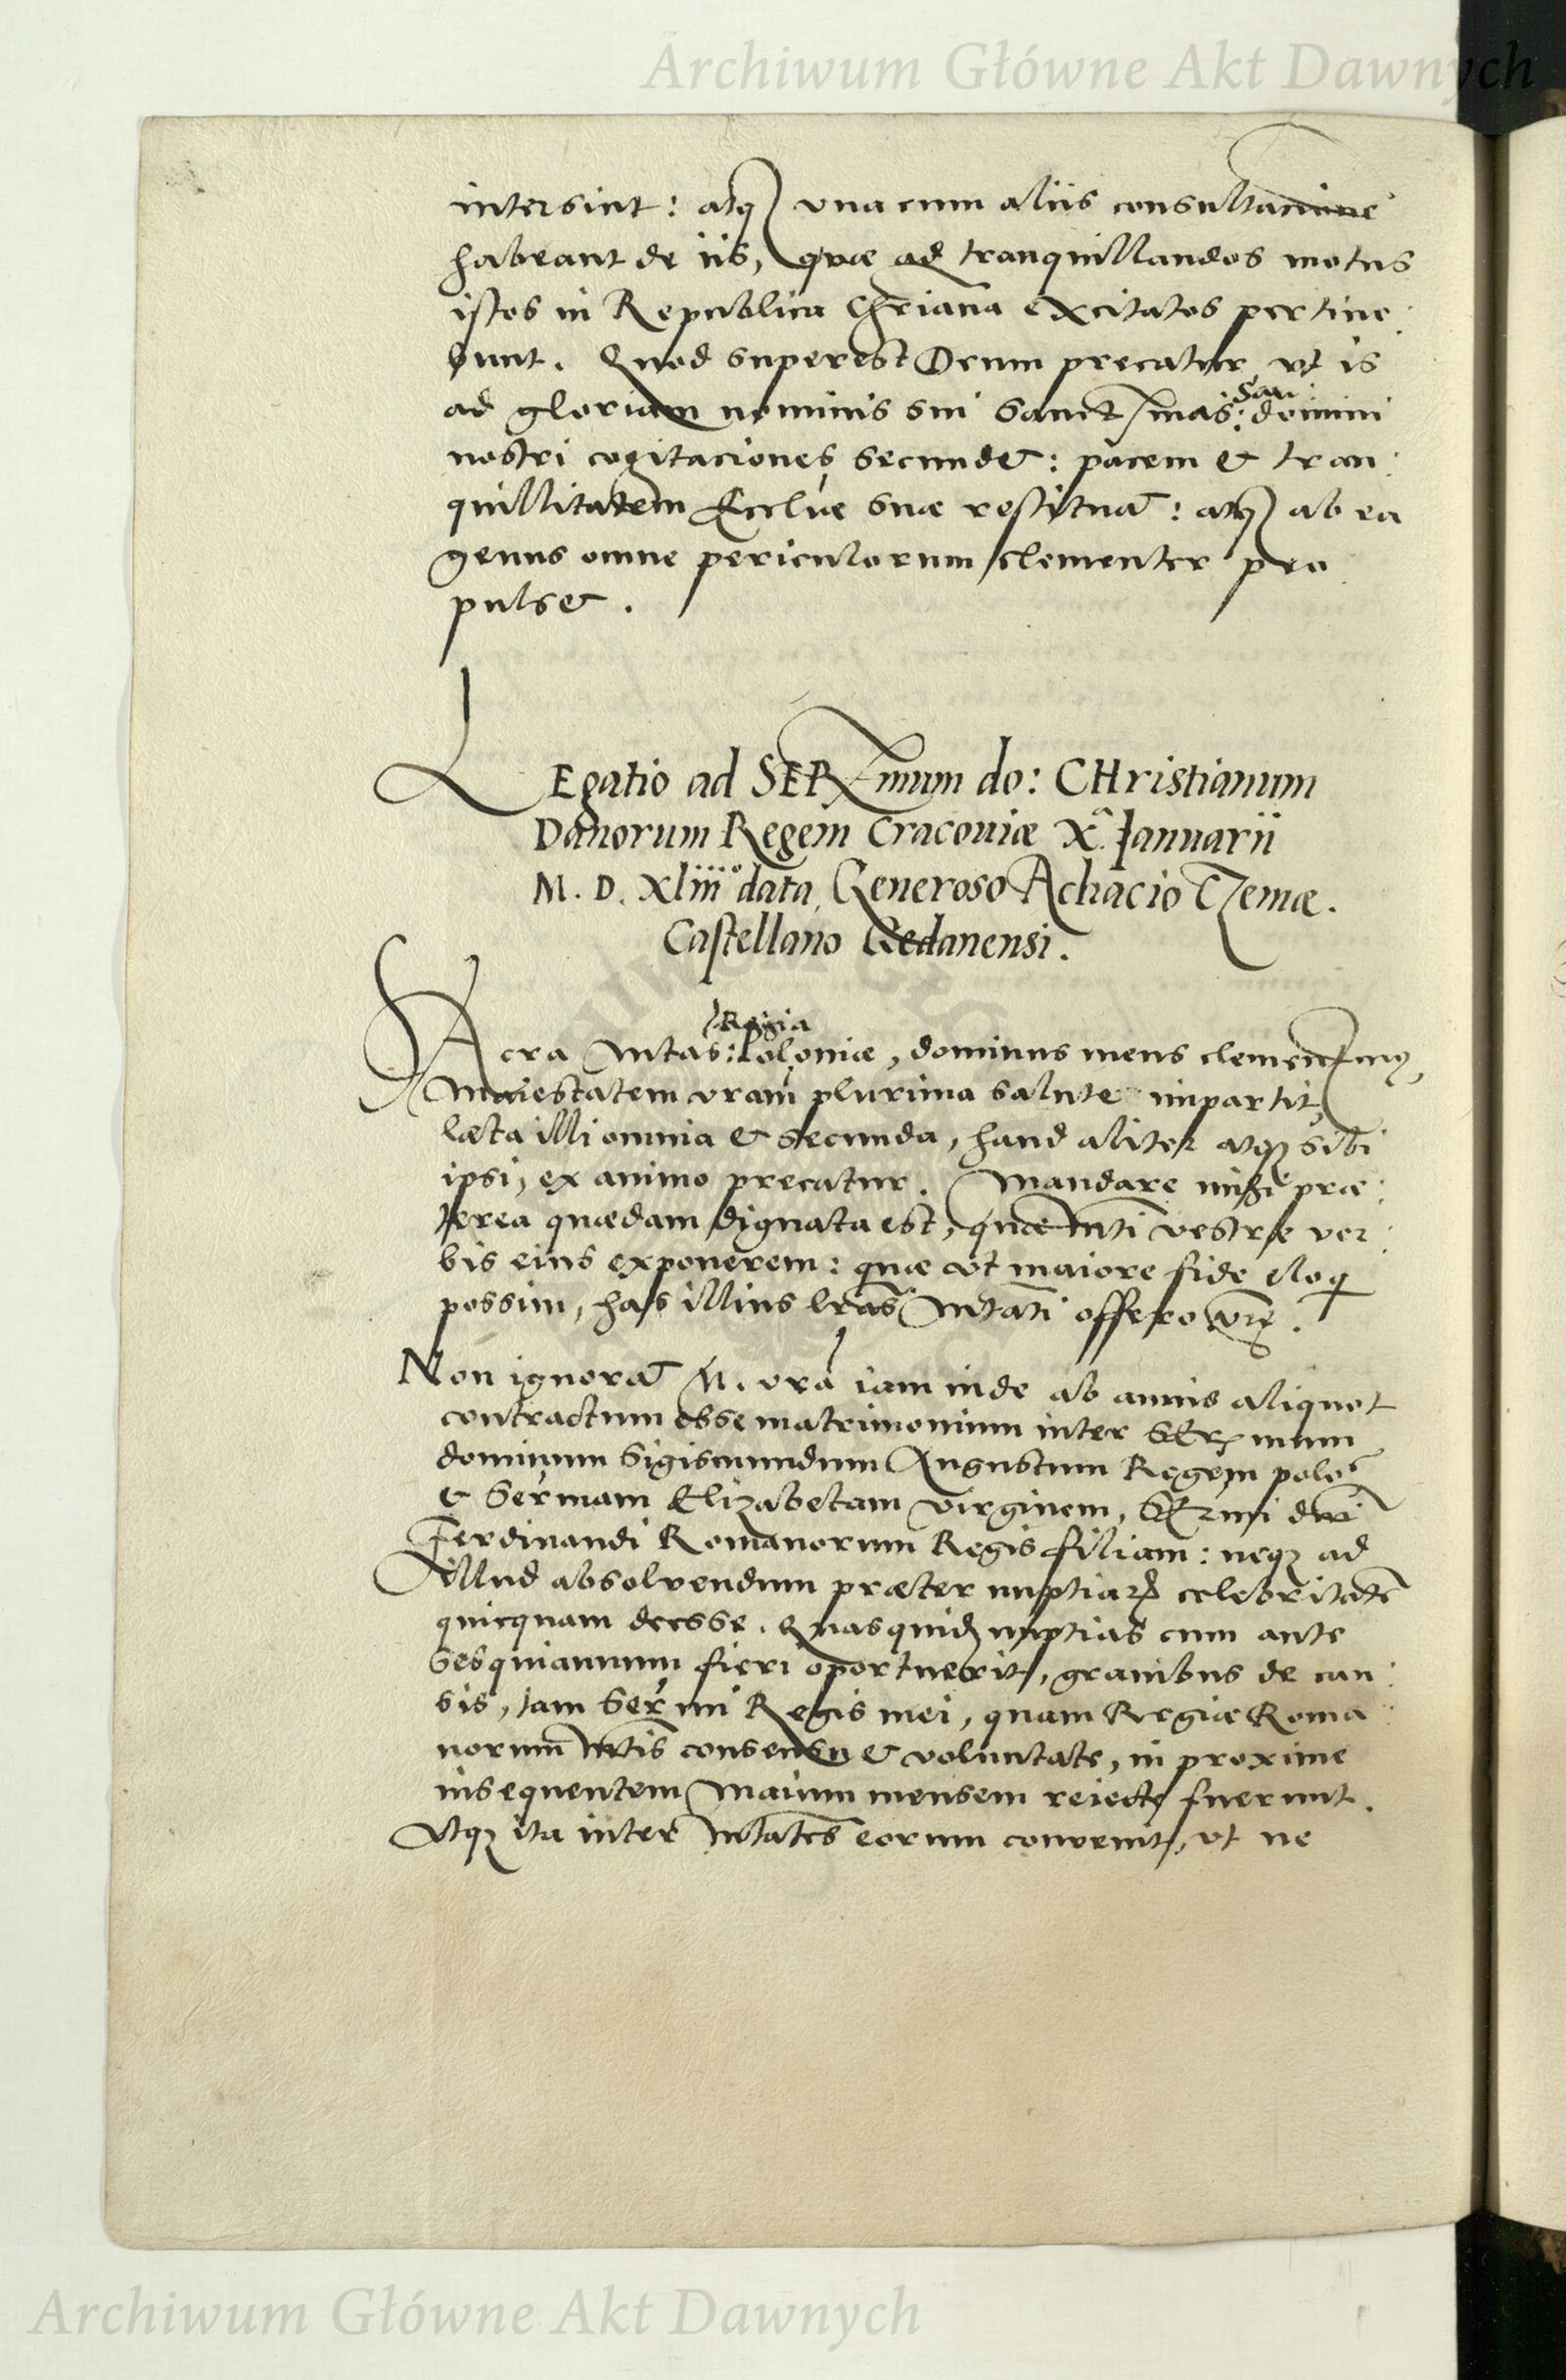 Archiwum Główne Akt Dawnych
intersint: atq3 vna cum aliis consultacione
habeant de iis, quæ ad tranquillandos motus
istos in Republica Chr̄iana excitatos pertine:
bunt. Quod superest Deum precatur, vt is
ad gloriam nominis sui Sanct mas: domini
nostri cogitaciones secundet: pacem et tran:
quillitatem Eccliæ suæ restituat: atq3 ab ea
genus omne periculorum clementer pro
pulset.
LEgatio ad SERmum do: CHristianum
Danorum Regem Cracouiæ Xa. Januarii
M. D. Xliiio data, Generoso Achacio Czemæ.
Castellano Gedanensi.
Regia
SAcra Mtas: Poloniæ, dominus meus clement mus,
Maiestatem vram plurima salute impartit,
læta illi omnia et secunda, haud aliter atq3 sibi
ipsi, ex animo precatur. Mandare mihi præ:
terea quædam dignata est, quæ Mti vestræ ver:
bis eius exponerem: quæ vt maiore fide eloq
possim, has illius lras Mtati offero vrę.
Non ignorat M. vra iam inde ab annis aliquot
contractum esse matrimonium inter SERmum
dominum Sigismundum Augustum Regem polo
et Sermam Elizabetam virginem, SERmi dni
Ferdinandi Romanorum Regis filiam: neq3 ad
illud absolvendum præter nuptiar celebritate
quicquam deesse. Quas quid nuptias cum ante
sesquiannum fieri oportuerit, grauibus de cau:
sis, tam Sermi Regis mei, quam Regiæ Roma:
norum Mtis consensu et voluntate, in proxime
insequentem Maium mensem reiecte fuerunt.
Atq3 ita inter Mtates eorum convenit, vt ne
Archiwum Główne Akt Dawnych